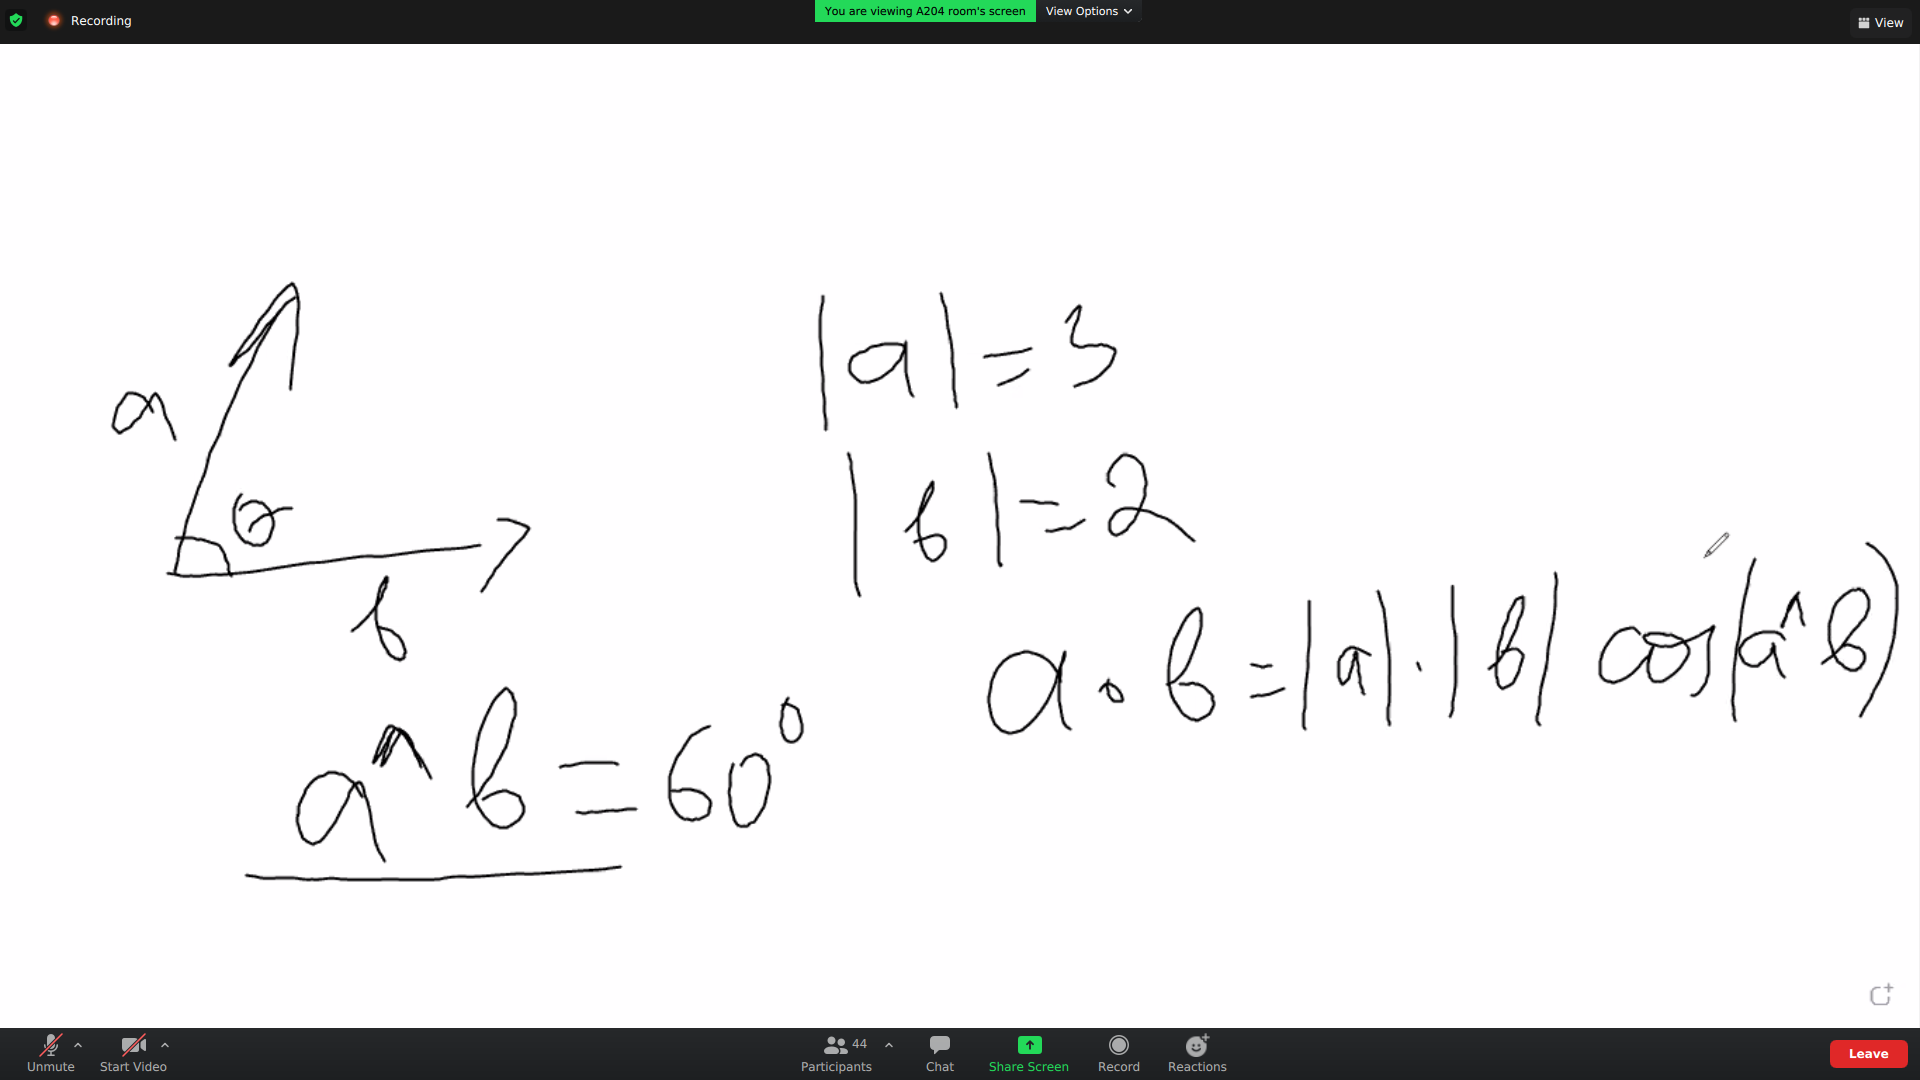 Recording
You are viewing A204 room's screen View Options
View
a
b
|a| = 3
|b| = 2
a ∘ b = |a| · |b| cos(a^b)
a^b = 60°
Unmute
Start Video
44
Participants
Chat
Share Screen
Record
Reactions
Leave